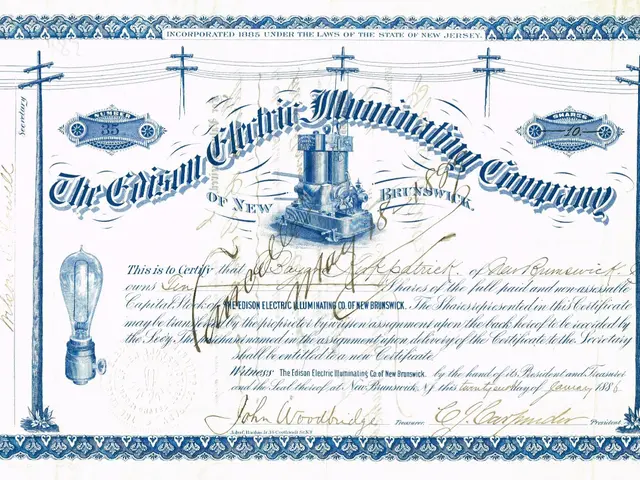 INCORPORATED 1885 UNDER THE LAWS OF THE STATE OF NEW JERSEY.
NUMBER
35
SHARES
10
The Edison Electric Illuminating Company
OF NEW BRUNSWICK.
Secretary
Cancelled May 18
This is to Certify that Kirkpatrick of New Brunswick
owns Ten Shares of the full paid and non-assessable
Capital Stock of THE EDISON ELECTRIC ILLUMINATING CO. OF NEW BRUNSWICK. The Shares represented in this Certificate
may be transferred by the proprietor by a upon assignment upon the back hereof to be recorded by
the Secy. The Shares named in the assignment upon delivery of the Certificate to the Secretary
shall be entitled to a new Certificate.
Witness The Edison Electric Illuminating Co of New Brunswick. by the hand of its President and Treasurer
and the Seal thereof at New Brunswick, NJ this twenty day of January 1886
John Woodbridge Treasurer. C. J. Carpender President